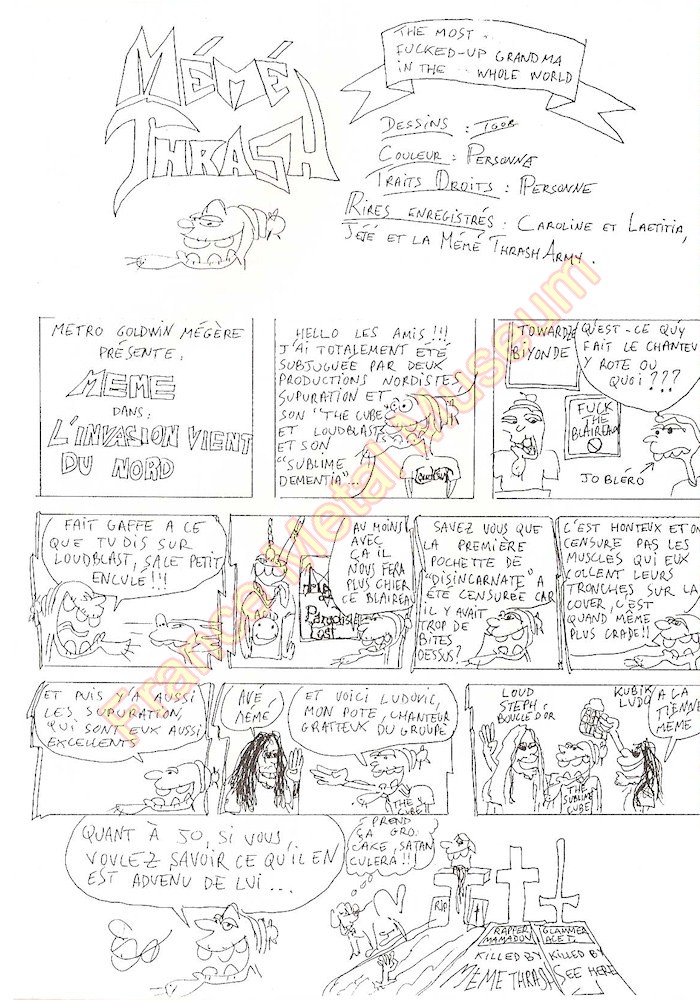 MÉMÉ
THRASH
THE MOST
FUCKED-UP GRANDMA
IN THE WHOLE WORLD
DESSINS : IGOR
COULEUR : PERSONNE
TRAITS DROITS : PERSONNE
RIRES ENREGISTRÉS : CAROLINE ET LAETITIA,
JÉJÉ ET LA MÉMÉ THRASH ARMY.
METRO GOLDWIN MÉGÈRE
PRÉSENTE :
MEME
DANS :
L'INVASION VIENT
DU NORD
HELLO LES AMIS !!!
J'AI TOTALEMENT ÉTÉ
SUBJUGUÉE PAR DEUX
PRODUCTIONS NORDISTES
SUPURATION ET
SON "THE CUBE"
ET LOUDBLAST
ET SON
"SUBLIME
DEMENTIA"...
LOUDBLAST
TOWARDZE
BIYONDE
QU'EST-CE QU'Y
FAIT LE CHANTEU
Y ROTE OU
QUOI ???
FUCK
THE
BLAIREAU
JO BLÉRO
FAIT GAFFE A CE
QUE TU DIS SUR
LOUDBLAST, SALE PETIT
ENCULE !!!
AU MOINS
AVEC
ÇA IL
NOUS FERA
PLUS CHIER
CE BLAIREAU
Paradise
Lost
SAVEZ VOUS QUE
LA PREMIÈRE
POCHETTE DE
"DISINCARNATE" A
ÉTÉ CENSURÉE CAR
IL Y AVAIT
TROP DE
BITES
DESSUS ?
C'EST HONTEUX ET ON
CENSURE PAS LES
MUSCLÉS QUI EUX
COLLENT LEURS
TRONCHES SUR LA
COVER, C'EST
QUAND MÊME
PLUS CRADE !!
ET PUIS Y'A AUSSI
LES SUPURATION,
QUI SONT EUX AUSSI
EXCELLENTS
AVÉ
MÉMÉ
ET VOICI LUDOVIC,
MON POTE, CHANTEUR
GRATTEUX DU GROUPE
THE
CUBE
LOUD
STEPH :
BOUCLE D'OR
KUBIK
LUDO
A LA
TIENNE
MEME
THE
SUBLIME
CUBE
QUANT À JO, SI VOUS
VOULEZ SAVOIR CE QU'IL EN
EST ADVENU DE LUI ...
PREND
ÇA GRO
CAKE, SATAN
CULERA !!!
RIP
RAPPER
MAMADOU
KILLED BY
MEME THRASH
GLAMMER
KILLED BY
SEE HERE
France Metal Museum